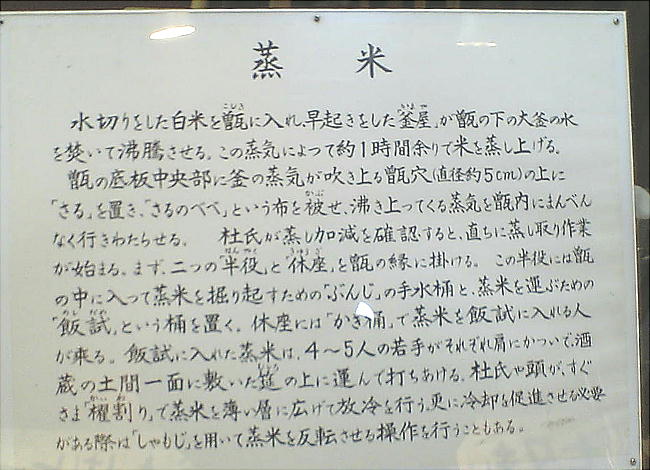 蒸米
水切りをした白米を甑に入れ、早起きをした「釜屋」が甑の下の大釜の水
を焚いて沸騰させる。この蒸気によって約1時間余りで米を蒸し上げる。
甑の底板中央部に釜の蒸気が吹き上る甑穴(直径約5cm)の上に
「さる」を置き、「さるのべべ」という布を被せ、沸き上ってくる蒸気を甑内にまんべん
なく行きわたらせる。 杜氏が蒸し加減を確認すると、直ちに蒸し取り作業
が始まる。まず、二つの「半役」と「休座」を甑の縁に掛ける。この半役には甑
の中に入って蒸米を掘り起すための「ぶんじ」の手水桶と、蒸米を運ぶための
「飯試」という桶を置く。休座には「かき桶」で蒸米を飯試に入れる人
が来る。飯試に入れた蒸米は、4〜5人の若手がそれぞれ肩にかついで、酒
蔵の土間一面に敷いた筵の上に運んで打ちあける。杜氏や頭が、すぐ
さま「櫂割り」で蒸米を薄い層に広げて放冷を行う。更に冷却を促進させる必要
がある際は「しゃもじ」を用いて蒸米を反転させる操作を行うこともある。